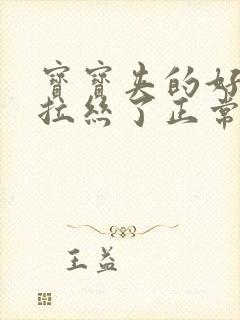 寶寶失的好
拉絲了正常
王益